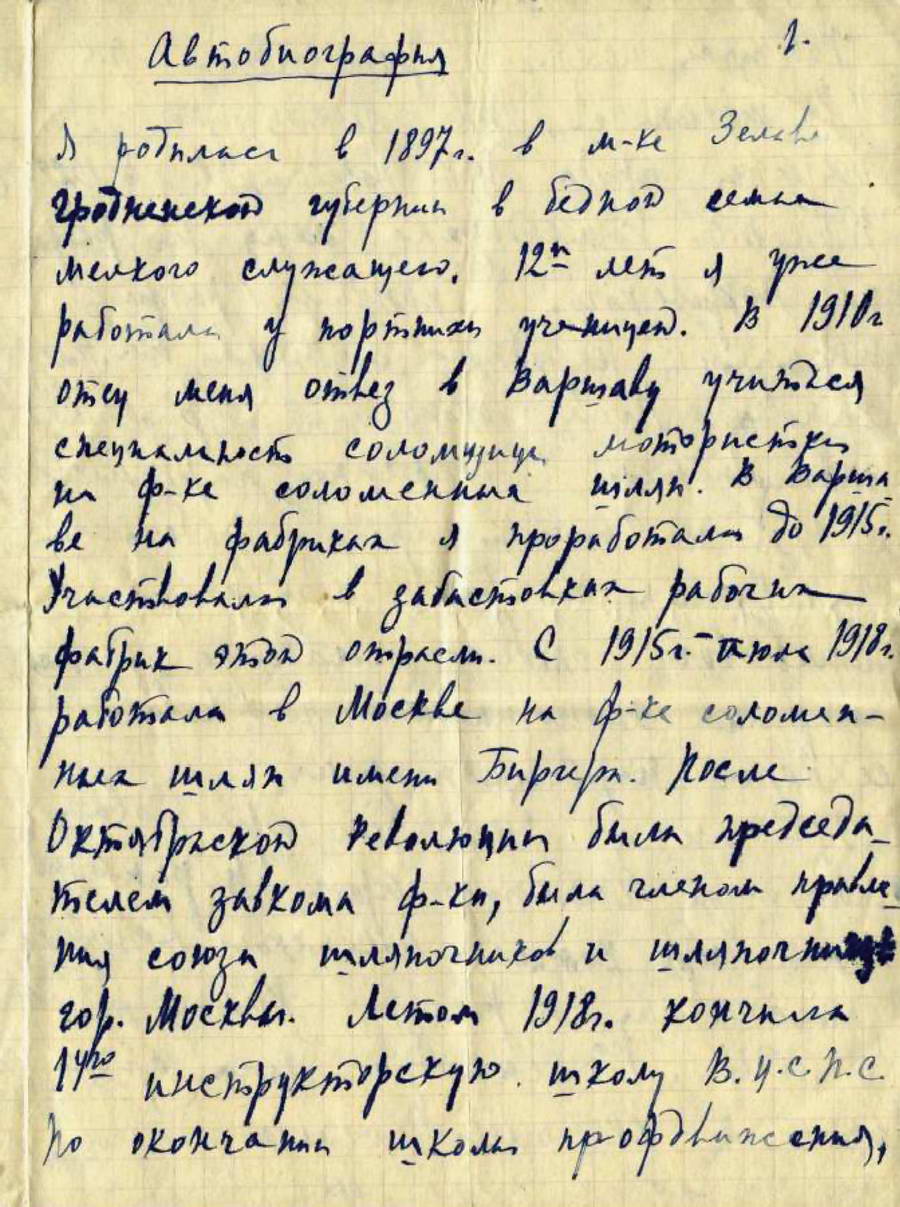 1.
Автобиография
Я родилась в 1897г. в м-ке Зельве
гродненской губернии в бедной семье
мелкого служащего. 12ти лет я уже
работала у портнихи ученицей. В 1910г
отец меня отвез в Варшаву учиться
специальность соломщицы мотористки
на ф-ке соломенных шляп. В Варша
ве на фабриках я проработала до 1915г.
Участвовала в забастовках рабочих
фабрик этой отрасли. С 1915г. – июль 1918г.
работала в Москве на ф-ке соломен-
ных шляп имени Биргера. После
Октябрьской Революции была председа-
телем завкома ф-ки, была членом правле-
ния союза шляпочников и шляпочниц
гор. Москвы. Летом 1918г. кончила
1ую инструкторскую школу В.Ц.С.П.С.
По окончании школы профдвижения,